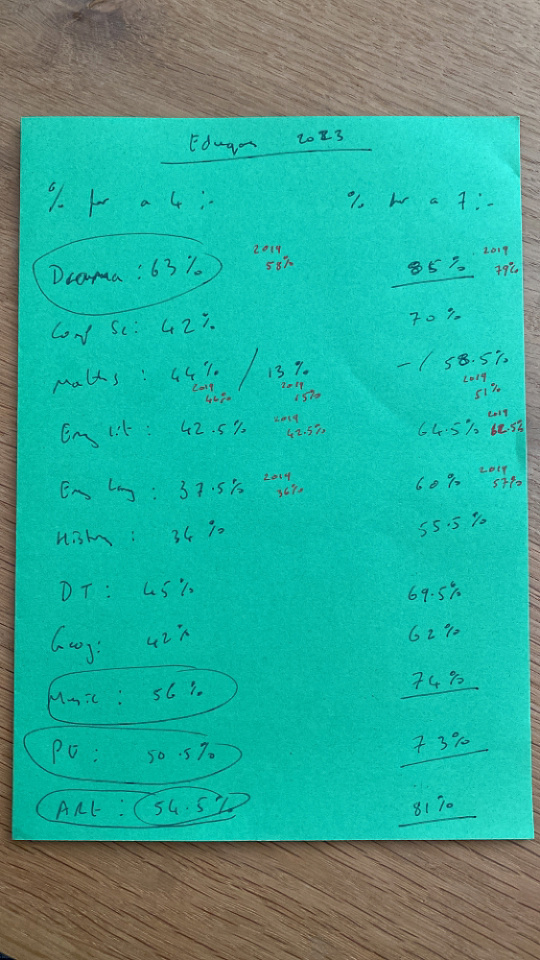 Eduqas 2023
% for a 4 :- % for a 7 :-
2019 2019
Drama : 63% 58% 85% 79%
Comp Sc : 42% 70%
Maths : 44% / 13% - / 58.5%
2019 2019 2019
46% 15% 51%
Eng Lit : 42.5% 2019 42.5% 64.5% 2019
Eng Lang : 37.5% 2019 36% 60% 2019 57%
History : 34% 55.5%
DT : 45% 69.5%
Geog : 42% 62%
Music : 56% 74%
PE : 50.5% 73%
ART : 54.5% 81%